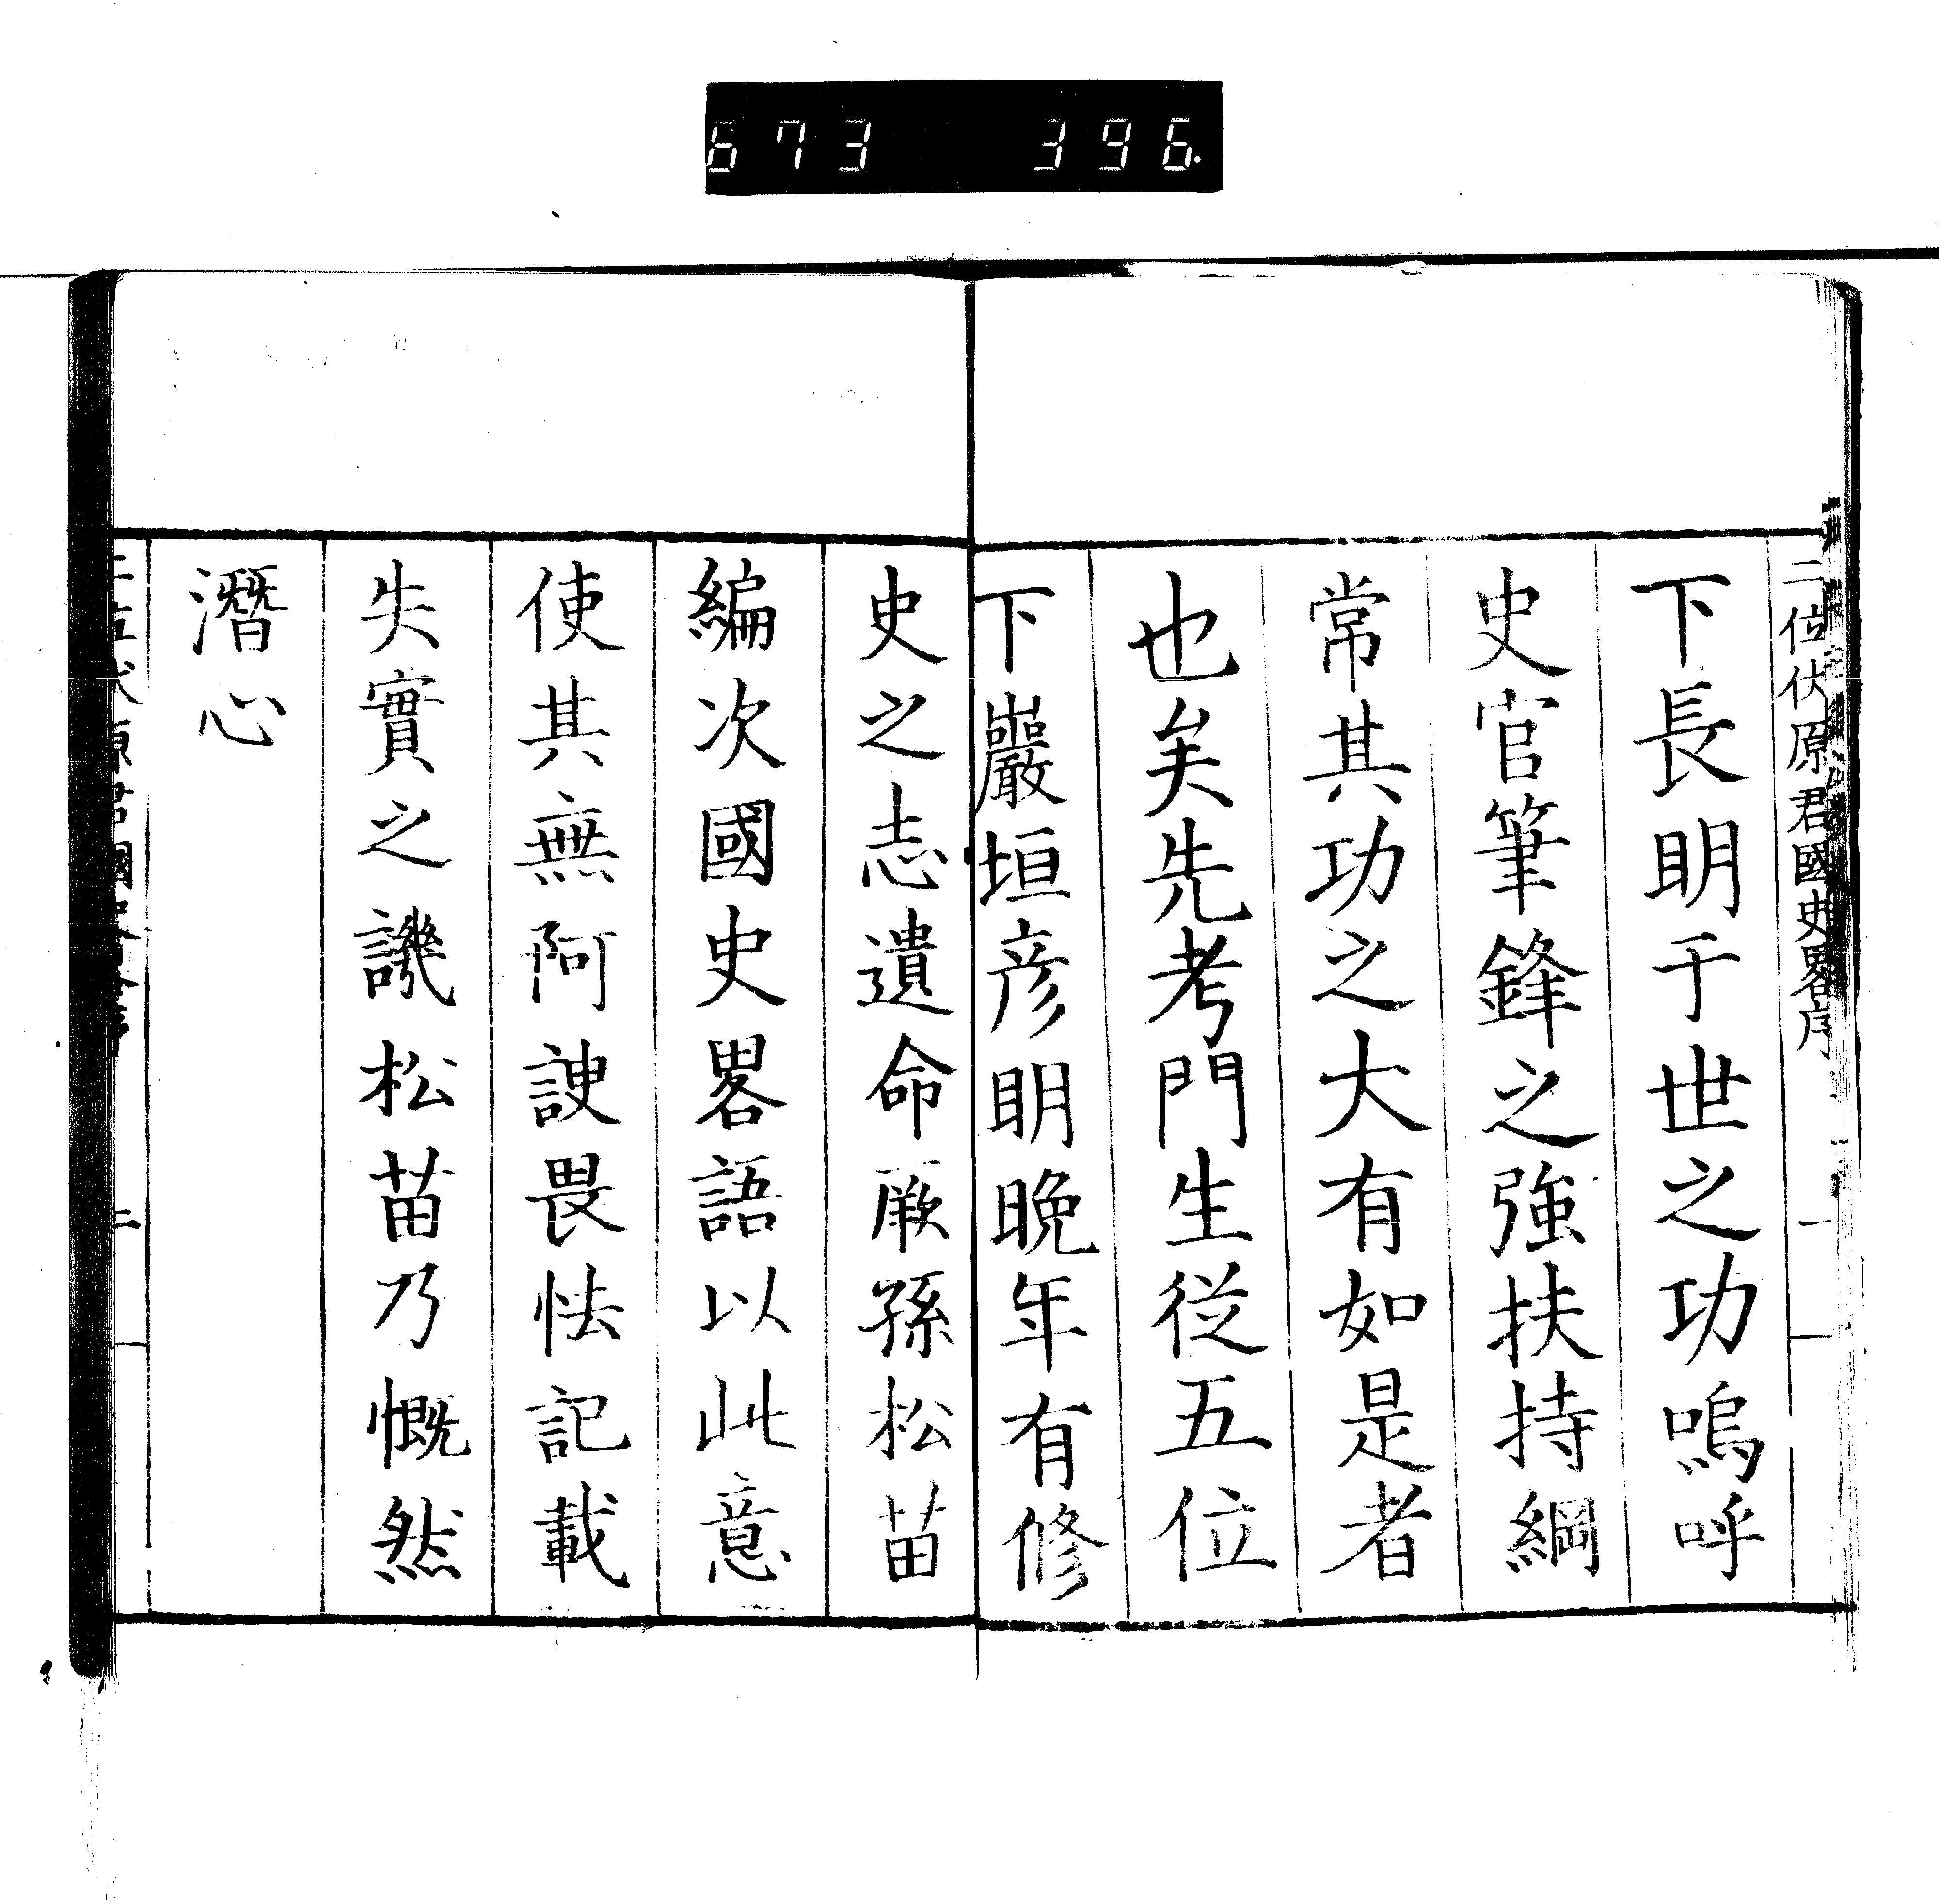 673 396.
二位伏原君國史畧序 一
下長明于世之功嗚呼
史官筆鋒之強扶持綱
常其功之大有如是者
也矣先考門生從五位
下巖垣彥明晚年有修
史之志遺命厥孫松苗
編次國史畧語以此意
使其無阿諛畏怯記載
失實之譏松苗乃慨然
潛心